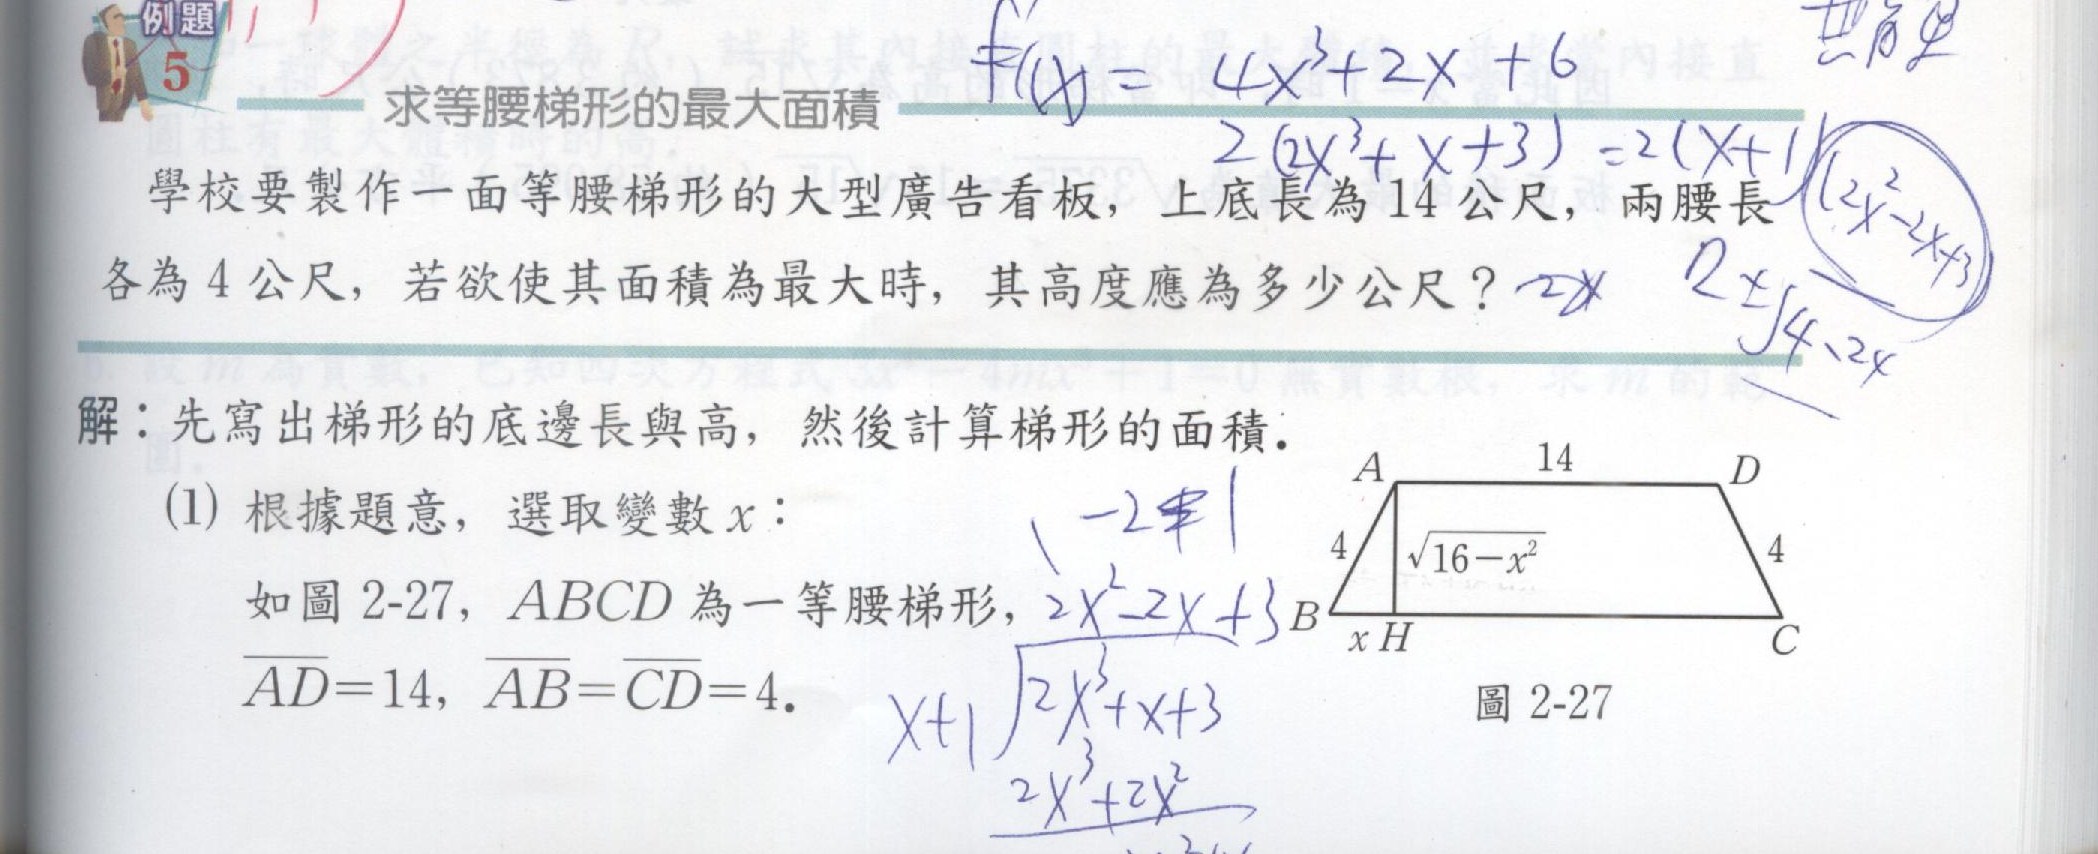 例題
5
f'(x) = 4x³+2x+6
求等腰梯形的最大面積
2(2x³+x+3) =2(x+1)(2x²-2x+3)
學校要製作一面等腰梯形的大型廣告看板，上底長為 14 公尺，兩腰長
各為 4 公尺，若欲使其面積為最大時，其高度應為多少公尺？
解：先寫出梯形的底邊長與高，然後計算梯形的面積．
(1) 根據題意，選取變數 x：
如圖 2-27，ABCD 為一等腰梯形，
\overline{AD}=14，\overline{AB}=\overline{CD}=4．
2x²-2x+3
x+1 2x³+x+3
2x³+2x²
A 14 D
4 √16-x² 4
B x H C
圖 2-27